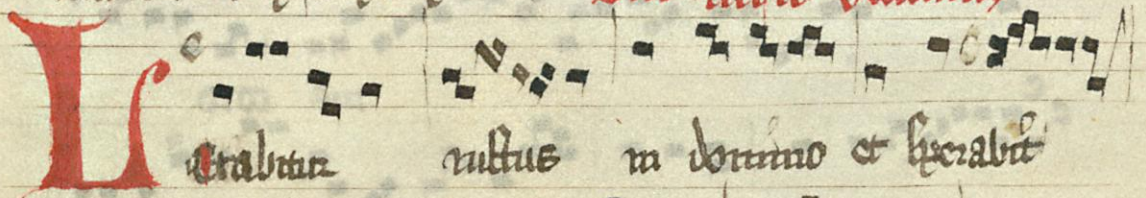 Letabitur iustus in domino et sperabit